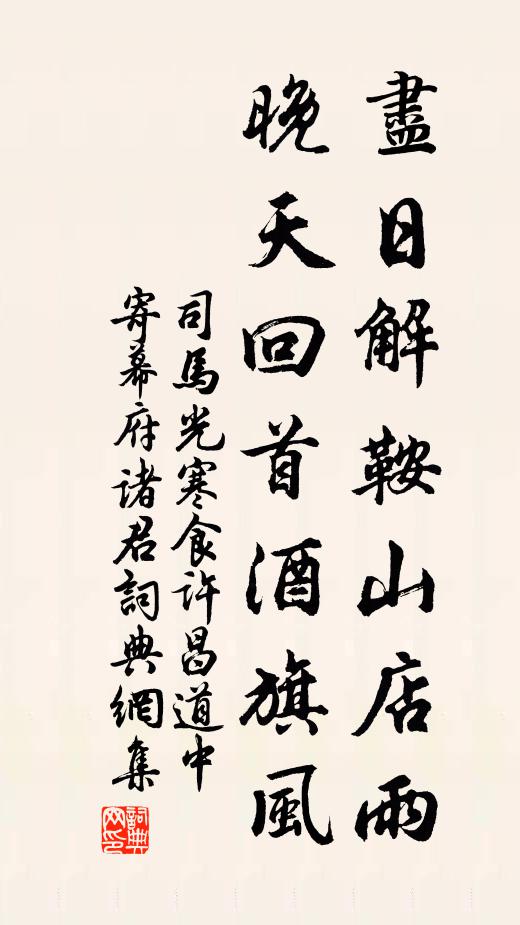 盡日解鞍山店雨
晚天回首酒旗風
司馬光寒食許昌道中
寄幕府諸君詞典網集
詞典
网印